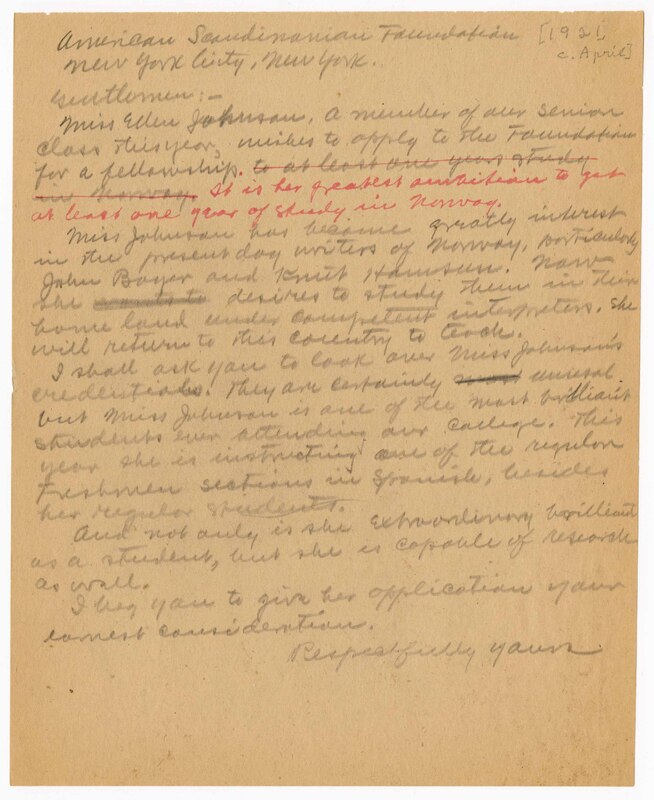 American Scandinavian Foundation [1921,
New York City, New York. c. April]
Gentlemen:-
Miss Ellen Johnson, a member of our senior
class this year, wishes to apply to the Foundation
for a fellowship. to at least one years study
in Norway. It is her greatest ambition to get
at least one year of study in Norway.
Miss Johnson has become greatly interest
in the present day writers of Norway, particularly
John Boyer and Knut Hamsun. Now
she desires to study them in their
home land under competent interpreters. She
will return to this country to teach.
I shall ask you to look over Miss Johnson's
credentials. They are certainly unusal
but Miss Johnson is one of the most brilliant
students ever attending our College. This
year she is instructing one of the regular
Freshmen sections in Spanish, besides
her regular students.
And not only is she extraordinary brilliant
as a student, but she is capable of research
as well.
I beg you to give her application your
earnest consideration.
Respectfully yours